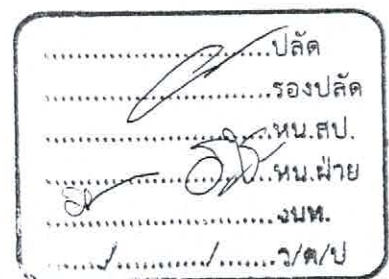 ....................ปลัด
....................รองปลัด
....................หน.สป.
....................หน.ฝ่าย
....................จนท.
....../............/.......ว/ด/ป